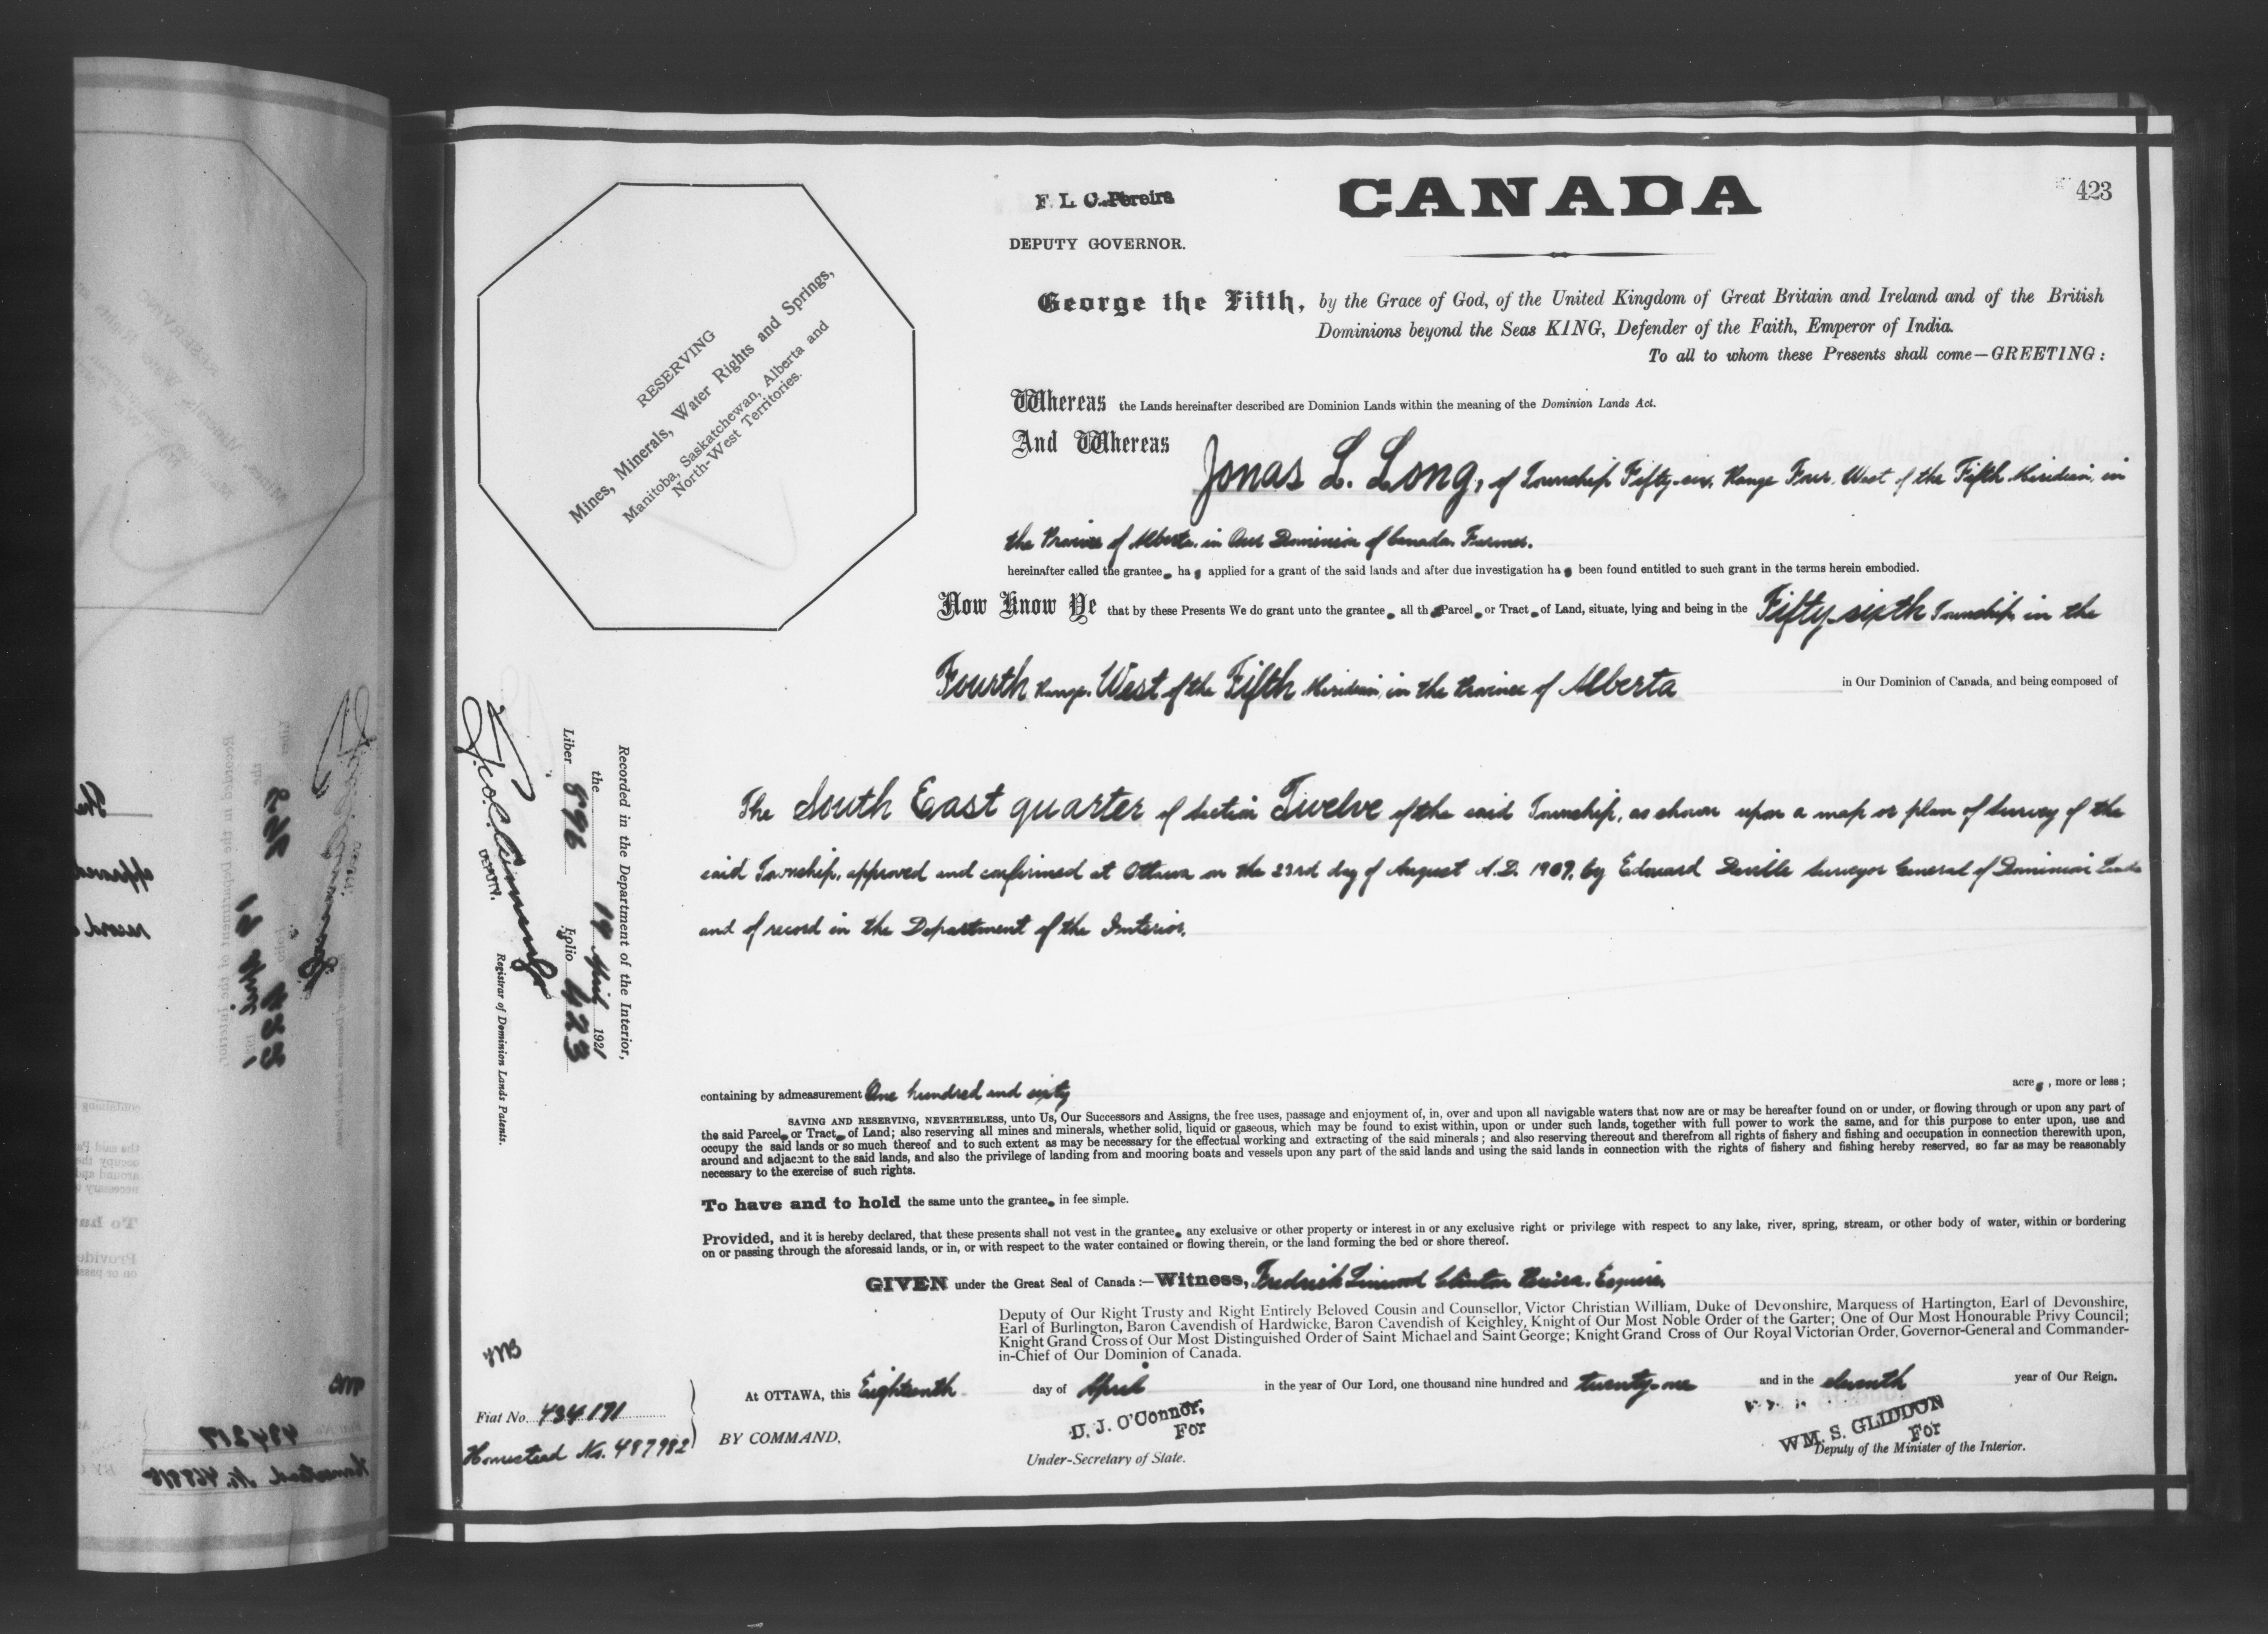 F. L. C. Pereira
DEPUTY GOVERNOR.
CANADA
423
RESERVING
Mines, Minerals, Water Rights and Springs,
Manitoba, Saskatchewan, Alberta and
North-West Territories.
George the Fifth, by the Grace of God, of the United Kingdom of Great Britain and Ireland and of the British
Dominions beyond the Seas KING, Defender of the Faith, Emperor of India.
To all to whom these Presents shall come—GREETING:
Whereas the Lands hereinafter described are Dominion Lands within the meaning of the Dominion Lands Act.
And Whereas
Jonas L. Long, of Township Fifty-six, Range Four, West of the Fifth Meridian, in
the Province of Alberta, in Our Dominion of Canada, Farmer.
hereinafter called the grantee ha s applied for a grant of the said lands and after due investigation ha s been found entitled to such grant in the terms herein embodied.
Now Know Ye that by these Presents We do grant unto the grantee all th Parcel or Tract of Land, situate, lying and being in the Fifty-sixth Township, in the
Fourth Range, West of the Fifth Meridian, in the Province of Alberta in Our Dominion of Canada, and being composed of
The South East quarter of Section Twelve of the said Township, as shown upon a map or plan of survey of the
said Township, approved and confirmed at Ottawa on the 23rd day of August A.D. 1909, by Edouard Deville Surveyor General of Dominion Lands
and of record in the Department of the Interior.
Recorded in the Department of the Interior,
the 19 April 1921
Liber 896 Folio 423
DEPUTY. Registrar of Dominion Lands Patents.
containing by admeasurement One hundred and sixty acres, more or less;
SAVING AND RESERVING, NEVERTHELESS, unto Us, Our Successors and Assigns, the free uses, passage and enjoyment of, in, over and upon all navigable waters that now are or may be hereafter found on or under, or flowing through or upon any part of
the said Parcel or Tract of Land; also reserving all mines and minerals, whether solid, liquid or gaseous, which may be found to exist within, upon or under such lands, together with full power to work the same, and for this purpose to enter upon, use and
occupy the said lands or so much thereof and to such extent as may be necessary for the effectual working and extracting of the said minerals; and also reserving thereout and therefrom all rights of fishery and fishing and occupation in connection therewith upon,
around and adjacent to the said lands, and also the privilege of landing from and mooring boats and vessels upon any part of the said lands and using the said lands in connection with the rights of fishery and fishing hereby reserved, so far as may be reasonably
necessary to the exercise of such rights.
To have and to hold the same unto the grantee in fee simple.
Provided, and it is hereby declared, that these presents shall not vest in the grantee any exclusive or other property or interest in or any exclusive right or privilege with respect to any lake, river, spring, stream, or other body of water, within or bordering
on or passing through the aforesaid lands, or in, or with respect to the water contained or flowing therein, or the land forming the bed or shore thereof.
GIVEN under the Great Seal of Canada:—Witness, Frederick Linwood Clinton Pereira, Esquire,
Deputy of Our Right Trusty and Right Entirely Beloved Cousin and Counsellor, Victor Christian William, Duke of Devonshire, Marquess of Hartington, Earl of Devonshire,
Earl of Burlington, Baron Cavendish of Hardwicke, Baron Cavendish of Keighley, Knight of Our Most Noble Order of the Garter; One of Our Most Honourable Privy Council;
Knight Grand Cross of Our Most Distinguished Order of Saint Michael and Saint George; Knight Grand Cross of Our Royal Victorian Order, Governor-General and Commander-
in-Chief of Our Dominion of Canada.
At OTTAWA, this Eighteenth day of April in the year of Our Lord, one thousand nine hundred and twenty-one and in the eleventh year of Our Reign.
Fiat No. 434171
Homestead No. 487982
BY COMMAND,
D. J. O'Connor,
For
Under-Secretary of State.
WM. S. GLIDDON
For
Deputy of the Minister of the Interior.